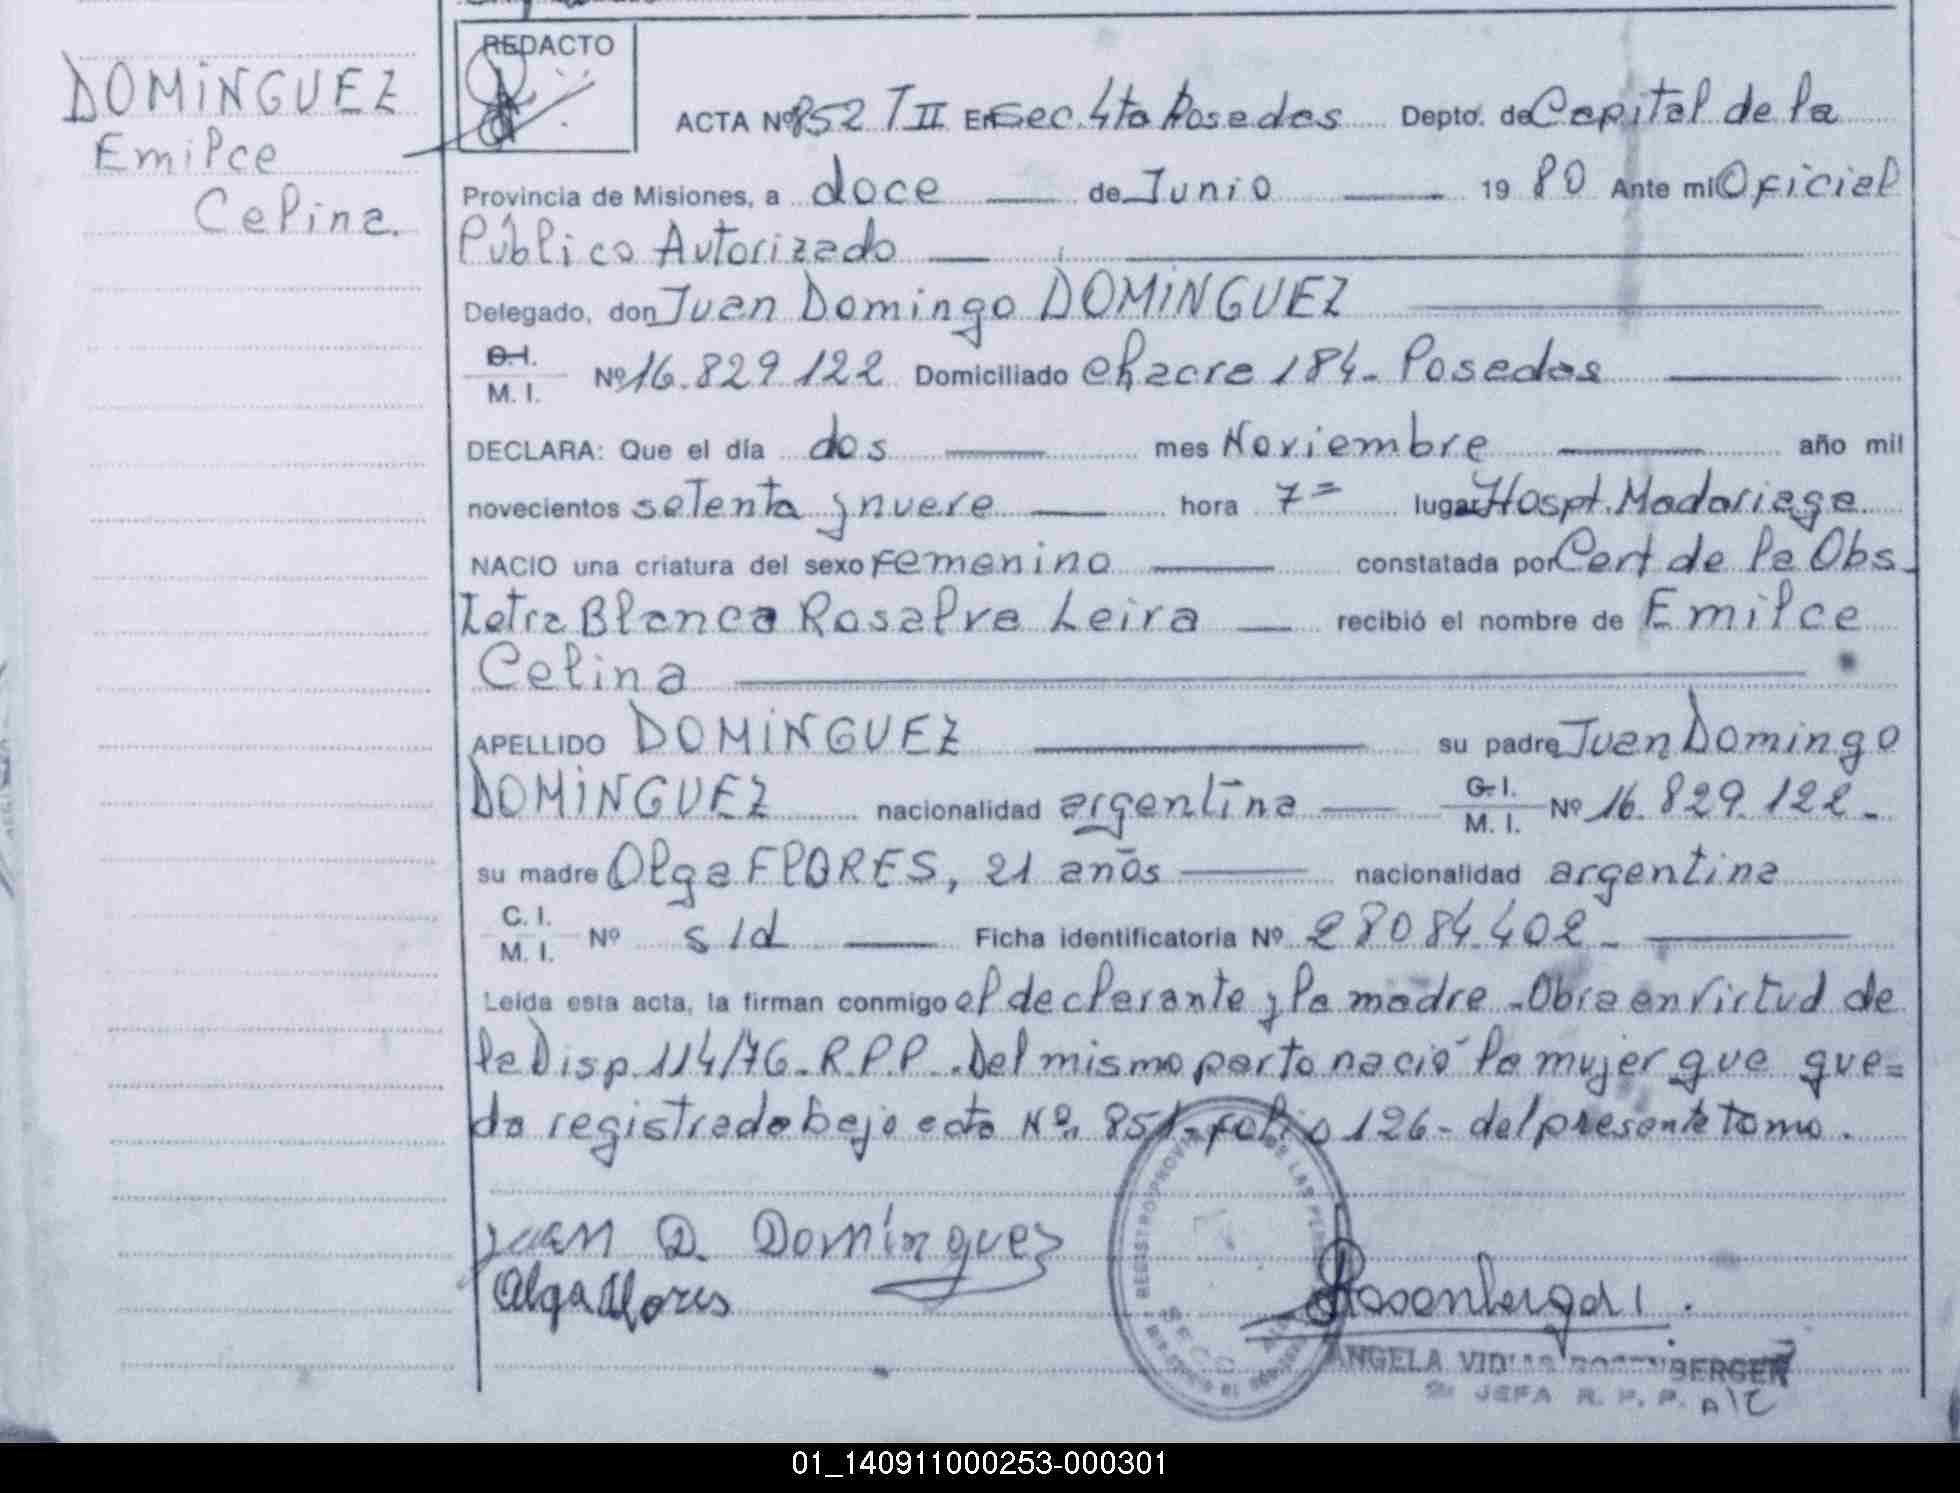 DOMINGUEZ
Emilce
Celina.
REDACTO
ACTA Nº 852 T II En Sec. 4ta Posadas Depto. de Capital de la
Provincia de Misiones, a doce de Junio 19 80 Ante mi Oficial
Público Autorizado
Delegado, don Juan Domingo DOMINGUEZ
C.I. M. I. Nº 16.829.122 Domiciliado chacra 184- Posadas
DECLARA: Que el día dos mes Noviembre año mil
novecientos setenta y nueve hora 7= lugar Hospt. Madariaga
NACIO una criatura del sexo femenino constatada por Cert de la Obs-
tetra Blanca Rosalva Leira recibió el nombre de Emilce
Celina
APELLIDO DOMINGUEZ su padre Juan Domingo
DOMINGUEZ nacionalidad argentina C.I. M. I. Nº 16.829.122-
su madre Olga FLORES, 21 años nacionalidad argentina
C. I. M. I. Nº s/d Ficha identificatoria Nº 28084.402-
Leída esta acta, la firman conmigo el declarante y la madre -Obra en virtud de
la Disp. 114/76-R.P.P.-Del mismo parto nació la mujer que que=
da registrada bajo acta Nº. 851-folio 126- del presente tomo.
Juan D. Domínguez
Olga Flores
REGISTRO DE LAS
ANGELA ROSENBERGER
JEFA R. P. P. A/C
01_140911000253-000301